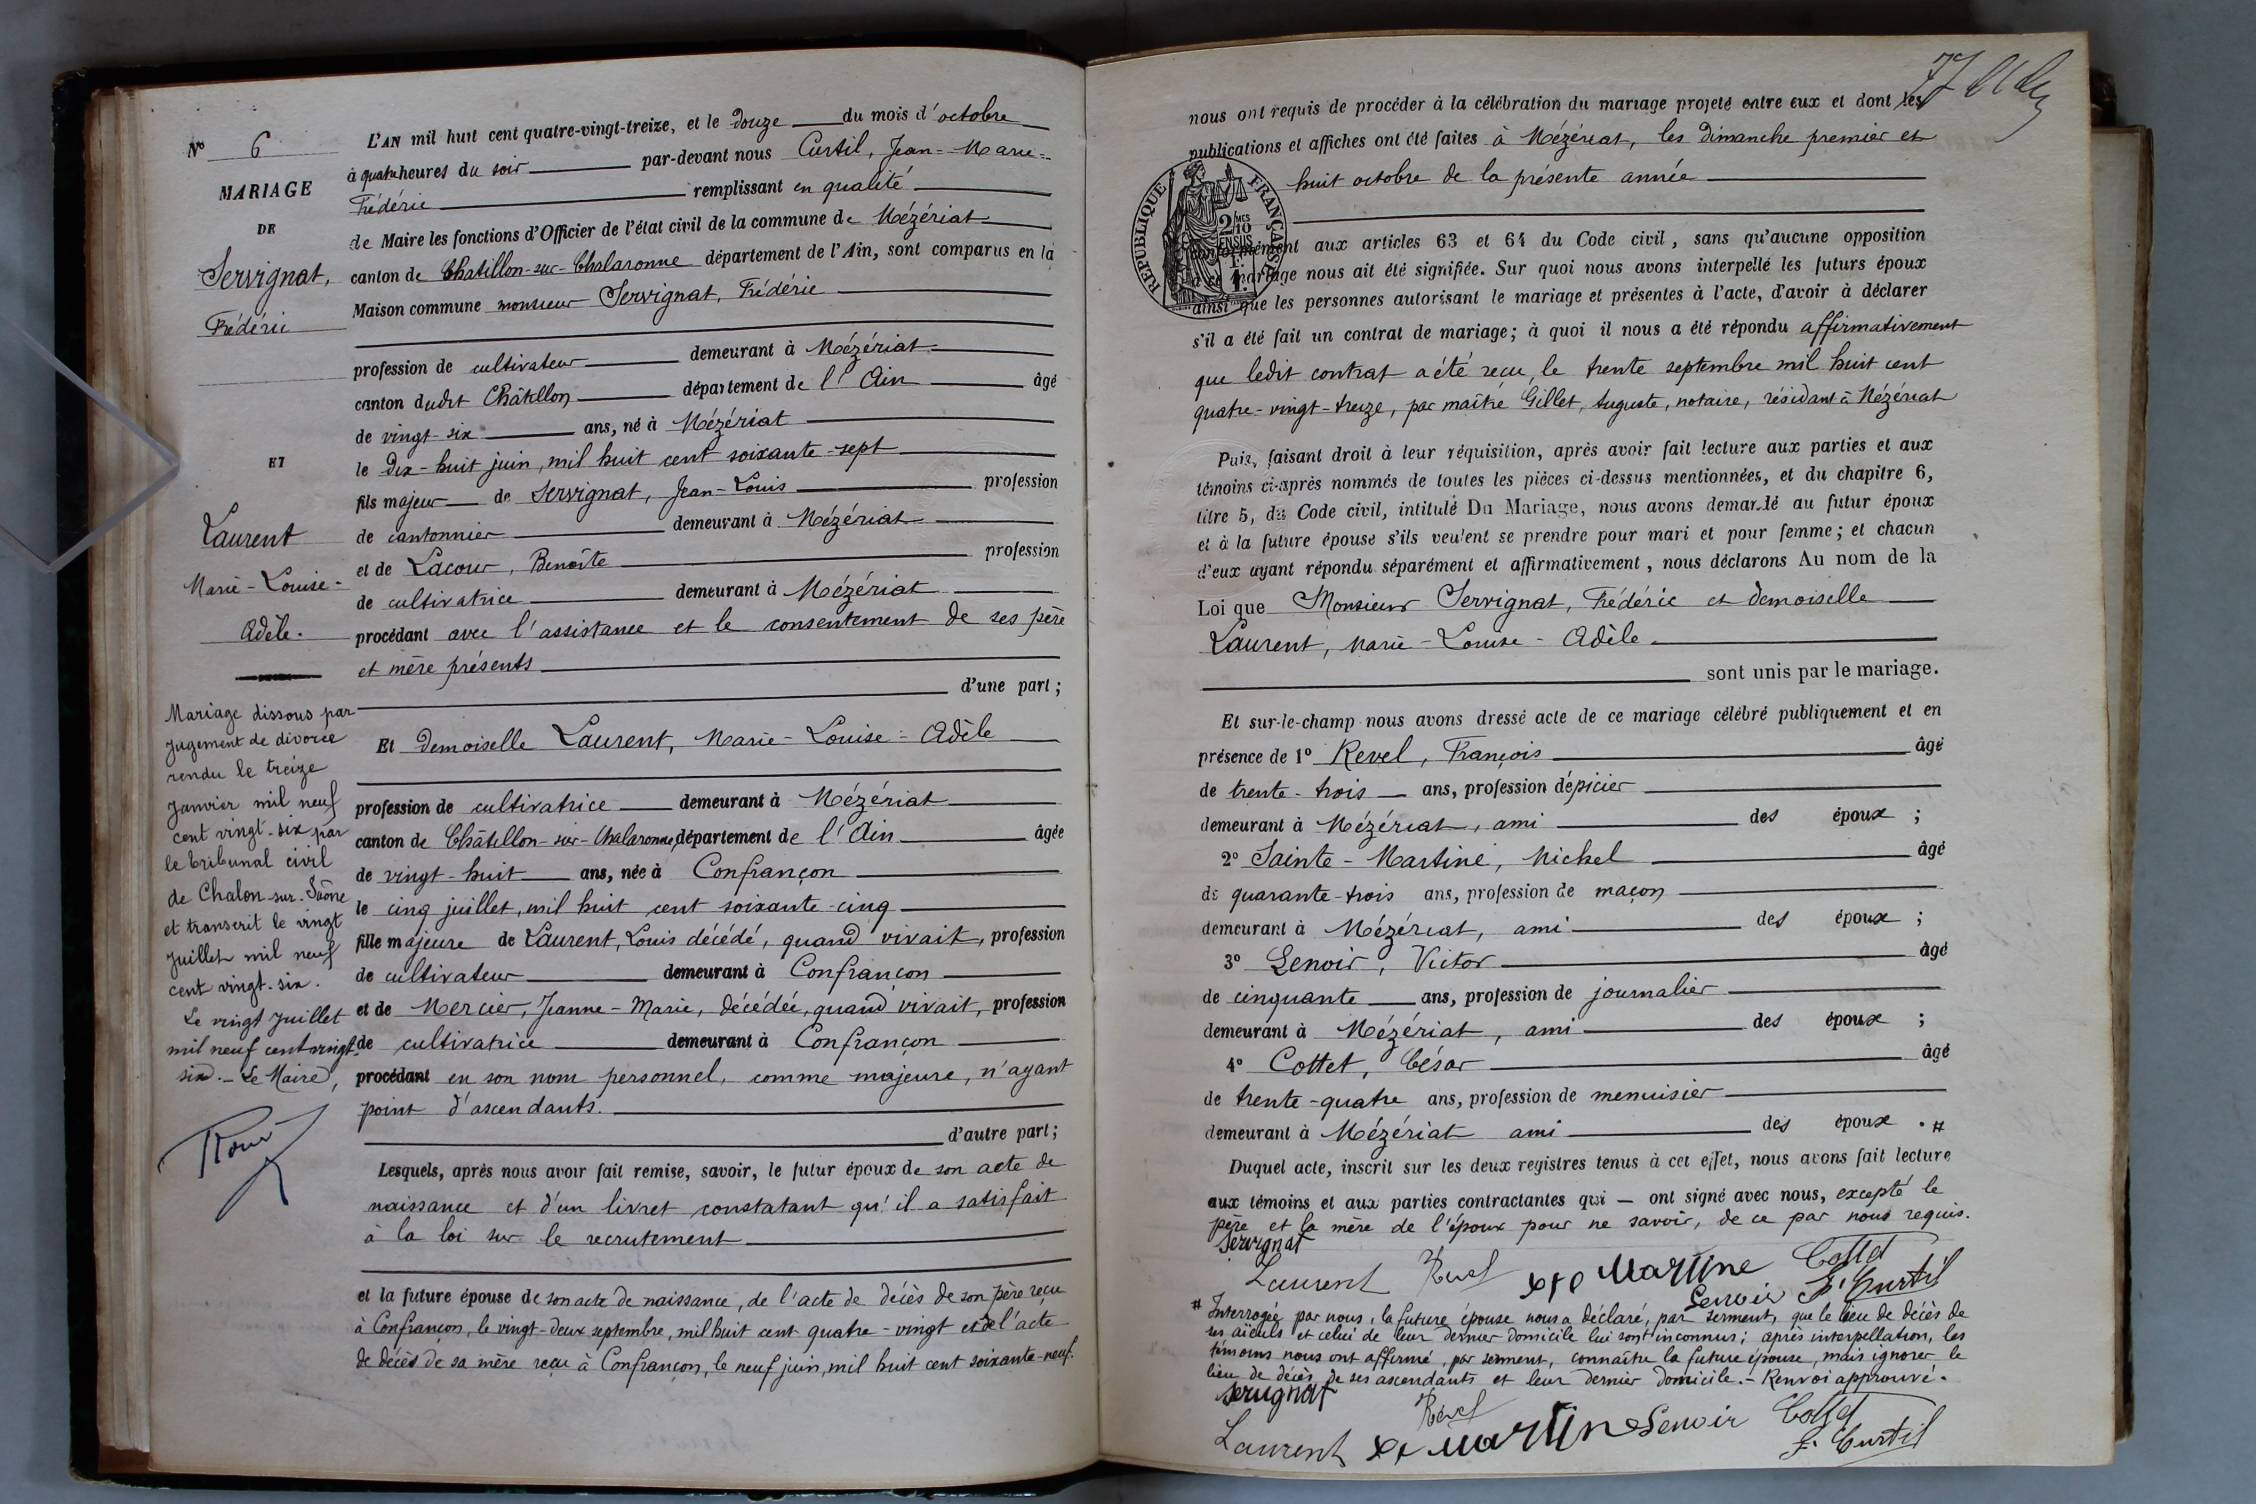 N° 6
MARIAGE
DE
Servignat,
Frédéric
ET
Laurent
Marie-Louise-
Adèle.
Mariage dissous par
jugement de divorce
rendu le treize
Janvier mil neuf
cent vingt-six par
le tribunal civil
de Chalon-sur-Saône
et transcrit le vingt
Juillet mil neuf
cent vingt-six.
Le vingt Juillet
mil neuf cent vingt-
six. - Le Maire,
L'AN mil huit cent quatre-vingt-treize, et le douze du mois d'octobre
à quatre heures du soir par-devant nous Curtil, Jean-Marie-
Frédéric remplissant en qualité
de Maire les fonctions d'Officier de l'état civil de la commune de Mézériat
canton de Chatillon-sur-Chalaronne département de l'Ain, sont comparus en la
Maison commune monsieur Servignat, Frédéric
profession de cultivateur demeurant à Mézériat
canton dudit Châtillon département de l'Ain âgé
de vingt-six ans, né à Mézériat
le dix-huit juin, mil huit cent soixante-sept
fils majeur de Servignat, Jean-Louis profession
de cantonnier demeurant à Mézériat
et de Lacour, Benoîte profession
de cultivatrice demeurant à Mézériat
procédant avec l'assistance et le consentement de ses père
et mère présents
d'une part;
Et demoiselle Laurent, Marie-Louise-Adèle
profession de cultivatrice demeurant à Mézériat
canton de Châtillon-sur-Chalaronne, département de l'Ain âgée
de vingt-huit ans, née à Confrançon
le cinq juillet, mil huit cent soixante-cinq
fille majeure de Laurent, Louis décédé, quand vivait, profession
de cultivateur demeurant à Confrançon
et de Mercier, Jeanne-Marie, décédée, quand vivait, profession
de cultivatrice demeurant à Confrançon
procédant en son nom personnel, comme majeure, n'ayant
point d'ascendants.
d'autre part;
Lesquels, après nous avoir fait remise, savoir, le futur époux de son acte de
naissance et d'un livret constatant qu'il a satisfait
à la loi sur le recrutement
et la future épouse de son acte de naissance, de l'acte de décès de son père reçu
à Confrançon, le vingt-deux septembre, mil huit cent quatre-vingt et de l'acte
de décès de sa mère reçu à Confrançon, le neuf juin, mil huit cent soixante-neuf.
nous ont requis de procéder à la célébration du mariage projeté entre eux et dont les
publications et affiches ont été faites à Mézériat, les dimanche premier et
huit octobre de la présente année
RÉPUBLIQUE FRANÇAISE
2/10 MES
EN SUS
1 F.
conformément aux articles 63 et 64 du Code civil, sans qu'aucune opposition
à ce mariage nous ait été signifiée. Sur quoi nous avons interpellé les futurs époux
ainsi que les personnes autorisant le mariage et présentes à l'acte, d'avoir à déclarer
s'il a été fait un contrat de mariage; à quoi il nous a été répondu affirmativement
que ledit contrat a été reçu, le trente septembre mil huit cent
quatre-vingt-treize, par maître Gillet, Auguste, notaire, résidant à Mézériat
Puis, faisant droit à leur réquisition, après avoir fait lecture aux parties et aux
témoins ci-après nommés de toutes les pièces ci-dessus mentionnées, et du chapitre 6,
titre 5, du Code civil, intitulé Du Mariage, nous avons demandé au futur époux
et à la future épouse s'ils veulent se prendre pour mari et pour femme; et chacun
d'eux ayant répondu séparément et affirmativement, nous déclarons Au nom de la
Loi que Monsieur Servignat, Frédéric et demoiselle
Laurent, Marie-Louise-Adèle.
sont unis par le mariage.
Et sur-le-champ nous avons dressé acte de ce mariage célébré publiquement et en
présence de 1° Revel, François âgé
de trente-trois ans, profession d'épicier
demeurant à Mézériat, ami des époux;
2° Sainte-Martine, Michel âgé
de quarante-trois ans, profession de maçon
demeurant à Mézériat, ami des époux;
3° Lenoir, Victor âgé
de cinquante ans, profession de journalier
demeurant à Mézériat, ami des époux;
4° Cottet, César âgé
de trente-quatre ans, profession de menuisier
demeurant à Mézériat ami des époux. #
Duquel acte, inscrit sur les deux registres tenus à cet effet, nous avons fait lecture
aux témoins et aux parties contractantes qui — ont signé avec nous, excepté le
père et la mère de l'époux pour ne savoir, de ce par nous requis.
Servignat
Laurent Revel Ste Martine Cottet
Lenoir F. Curtil
# Interrogée par nous, la future épouse nous a déclaré, par serment, que le lieu de décès de
ses aïeuls et celui de leur dernier domicile lui sont inconnus; après interpellation, les
témoins nous ont affirmé, par serment, connaître la future épouse, mais ignorer le
lieu de décès de ses ascendants et leur dernier domicile. - Renvoi approuvé.
Servignat Revel
Laurent Martine Lenoir Cottet
F. Curtil